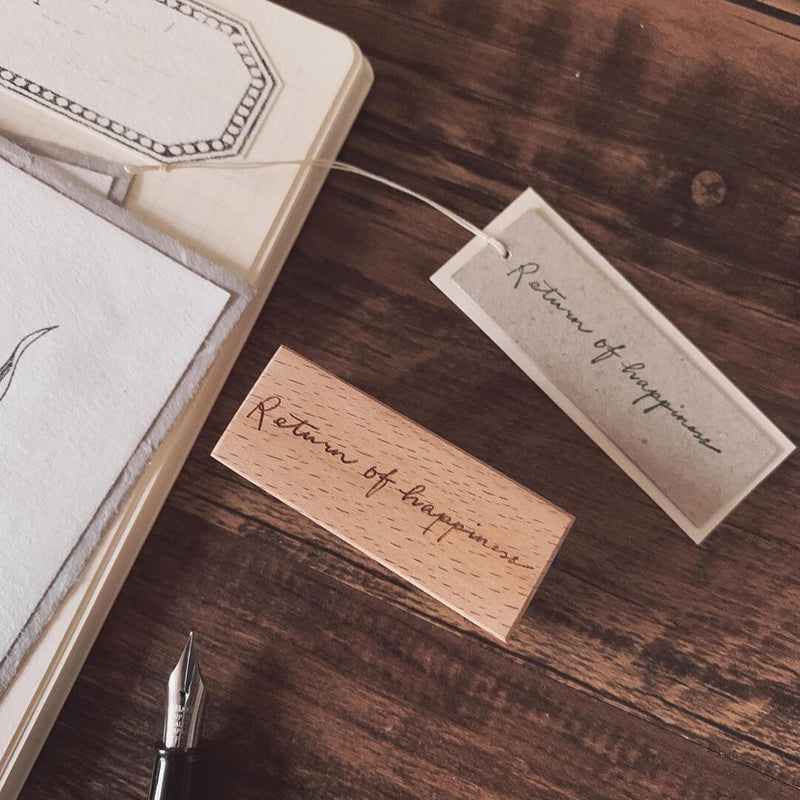 Return of happiness
Return of happiness